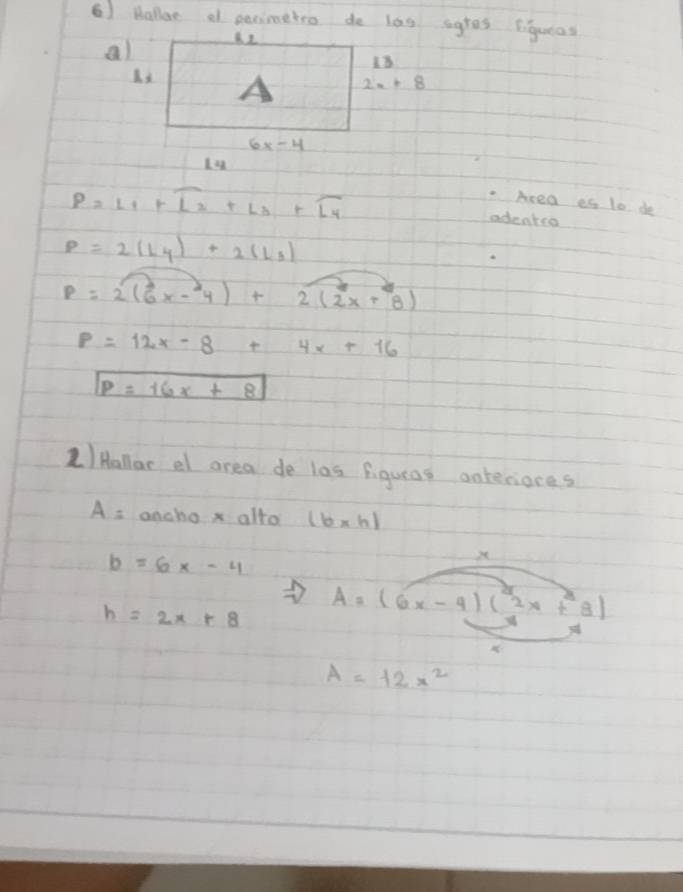 6) Hallar el perimetro de las sgtes figuras
a)
L2
L1
A
L3
2x + 8
6x - 4
L4
P = L1 + L2 + L3 + L4
• Area es lo de
adentro
P = 2(L4) + 2(L3)
•
P = 2(6x - 4) + 2(2x + 8)
P = 12x - 8 + 4x + 16
P = 16x + 8
2) Hallar el area de las figuras anteriores
A = ancho x alto (b x h)
b = 6x - 4
h = 2x + 8
x
⇒ A = (6x - 4)(2x + 8)
x
A = 12x²